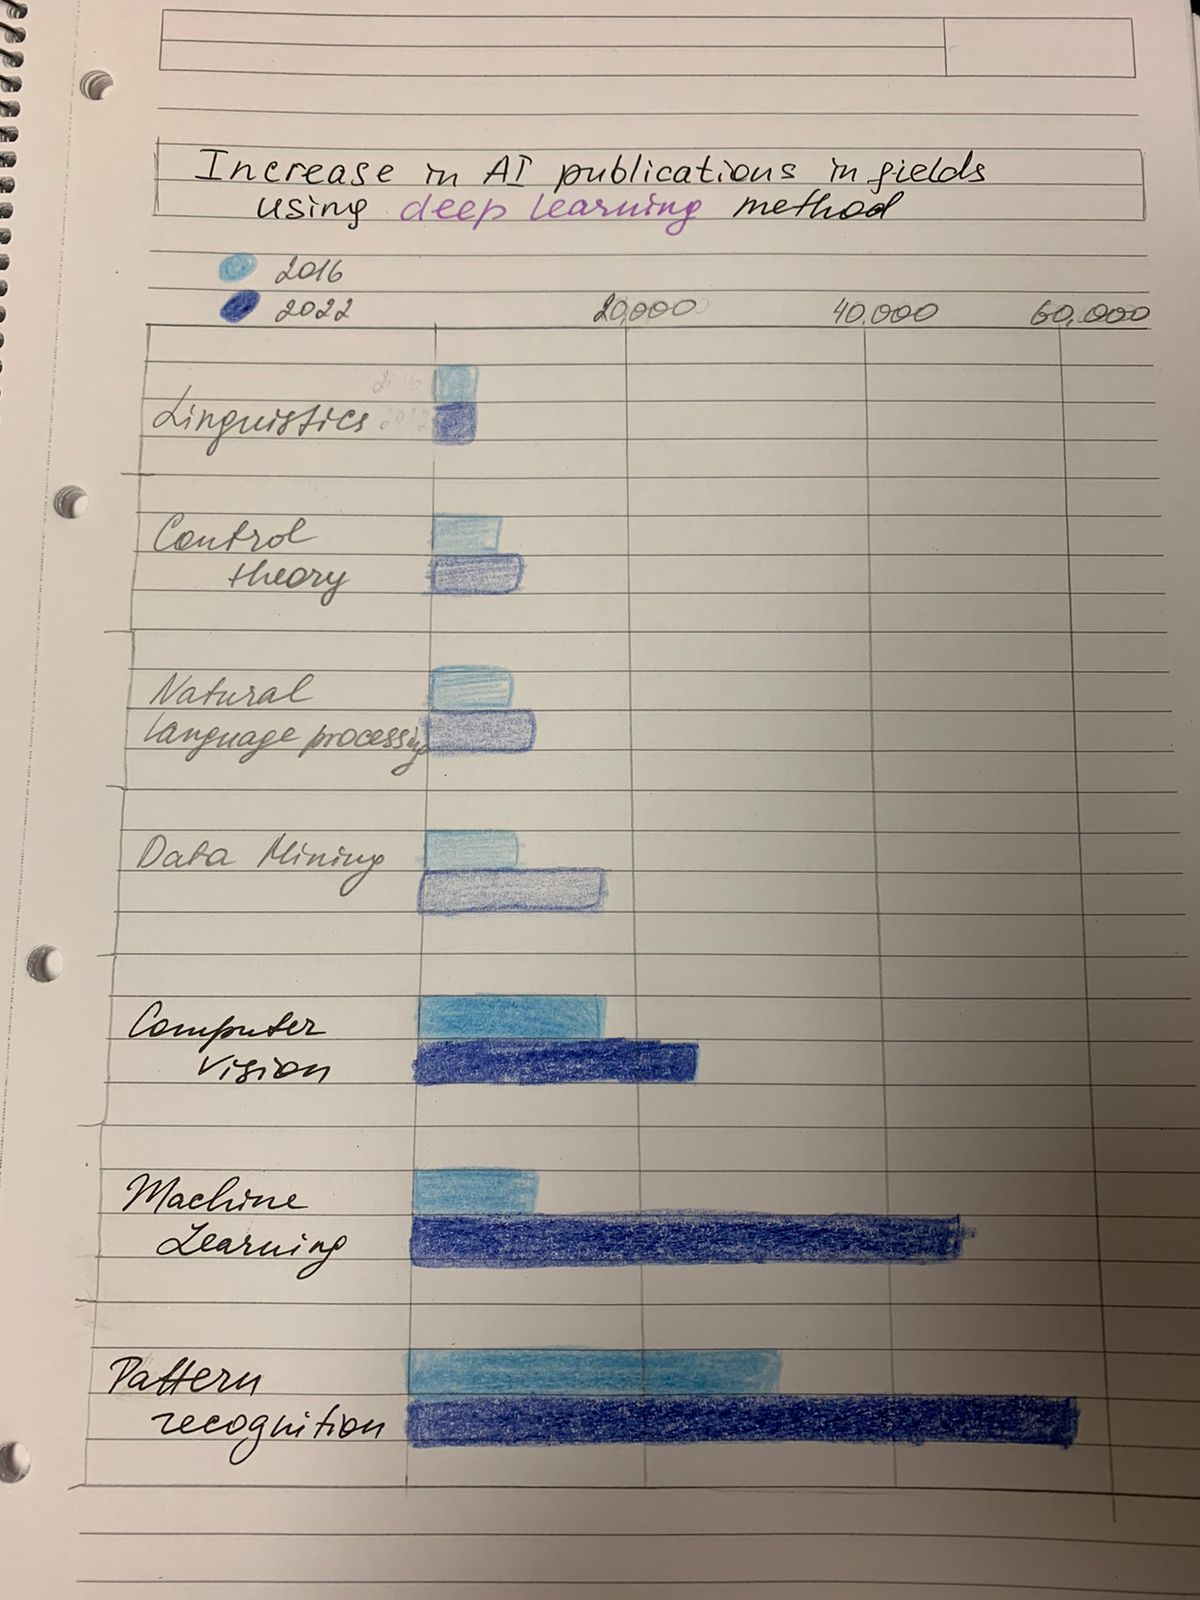 Increase in AI publications in fields
using deep learning method
2016
2022
20,000 40.000 60.000
2016
Linguistics 2022
Control
theory
Natural
language processing
Data Mining
Computer
vision
Machine
Learning
Pattern
recognition